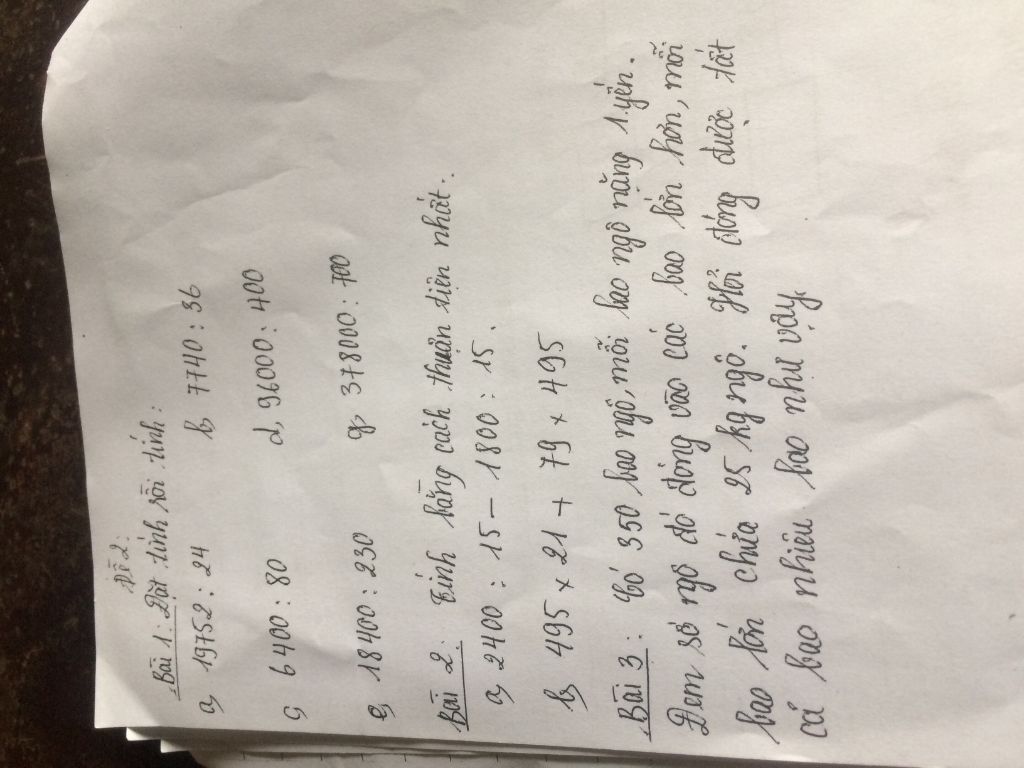 Đề 2:
Bài 1: Đặt tính rồi tính:
a, 19752 : 24 b, 7740 : 36
c, 6400 : 80 d, 96000 : 400
e, 18400 : 230 g, 378000 : 700
Bài 2: Tính bằng cách thuận tiện nhất.
a, 2400 : 15 - 1800 : 15.
b, 495 x 21 + 79 x 495
Bài 3: Có 350 bao ngô, mỗi bao ngô nặng 1 yến.
Đem số ngô đó đóng vào các bao lớn hơn, mỗi
bao lớn chứa 25 kg ngô. Hỏi đóng được tất
cả bao nhiêu bao như vậy.